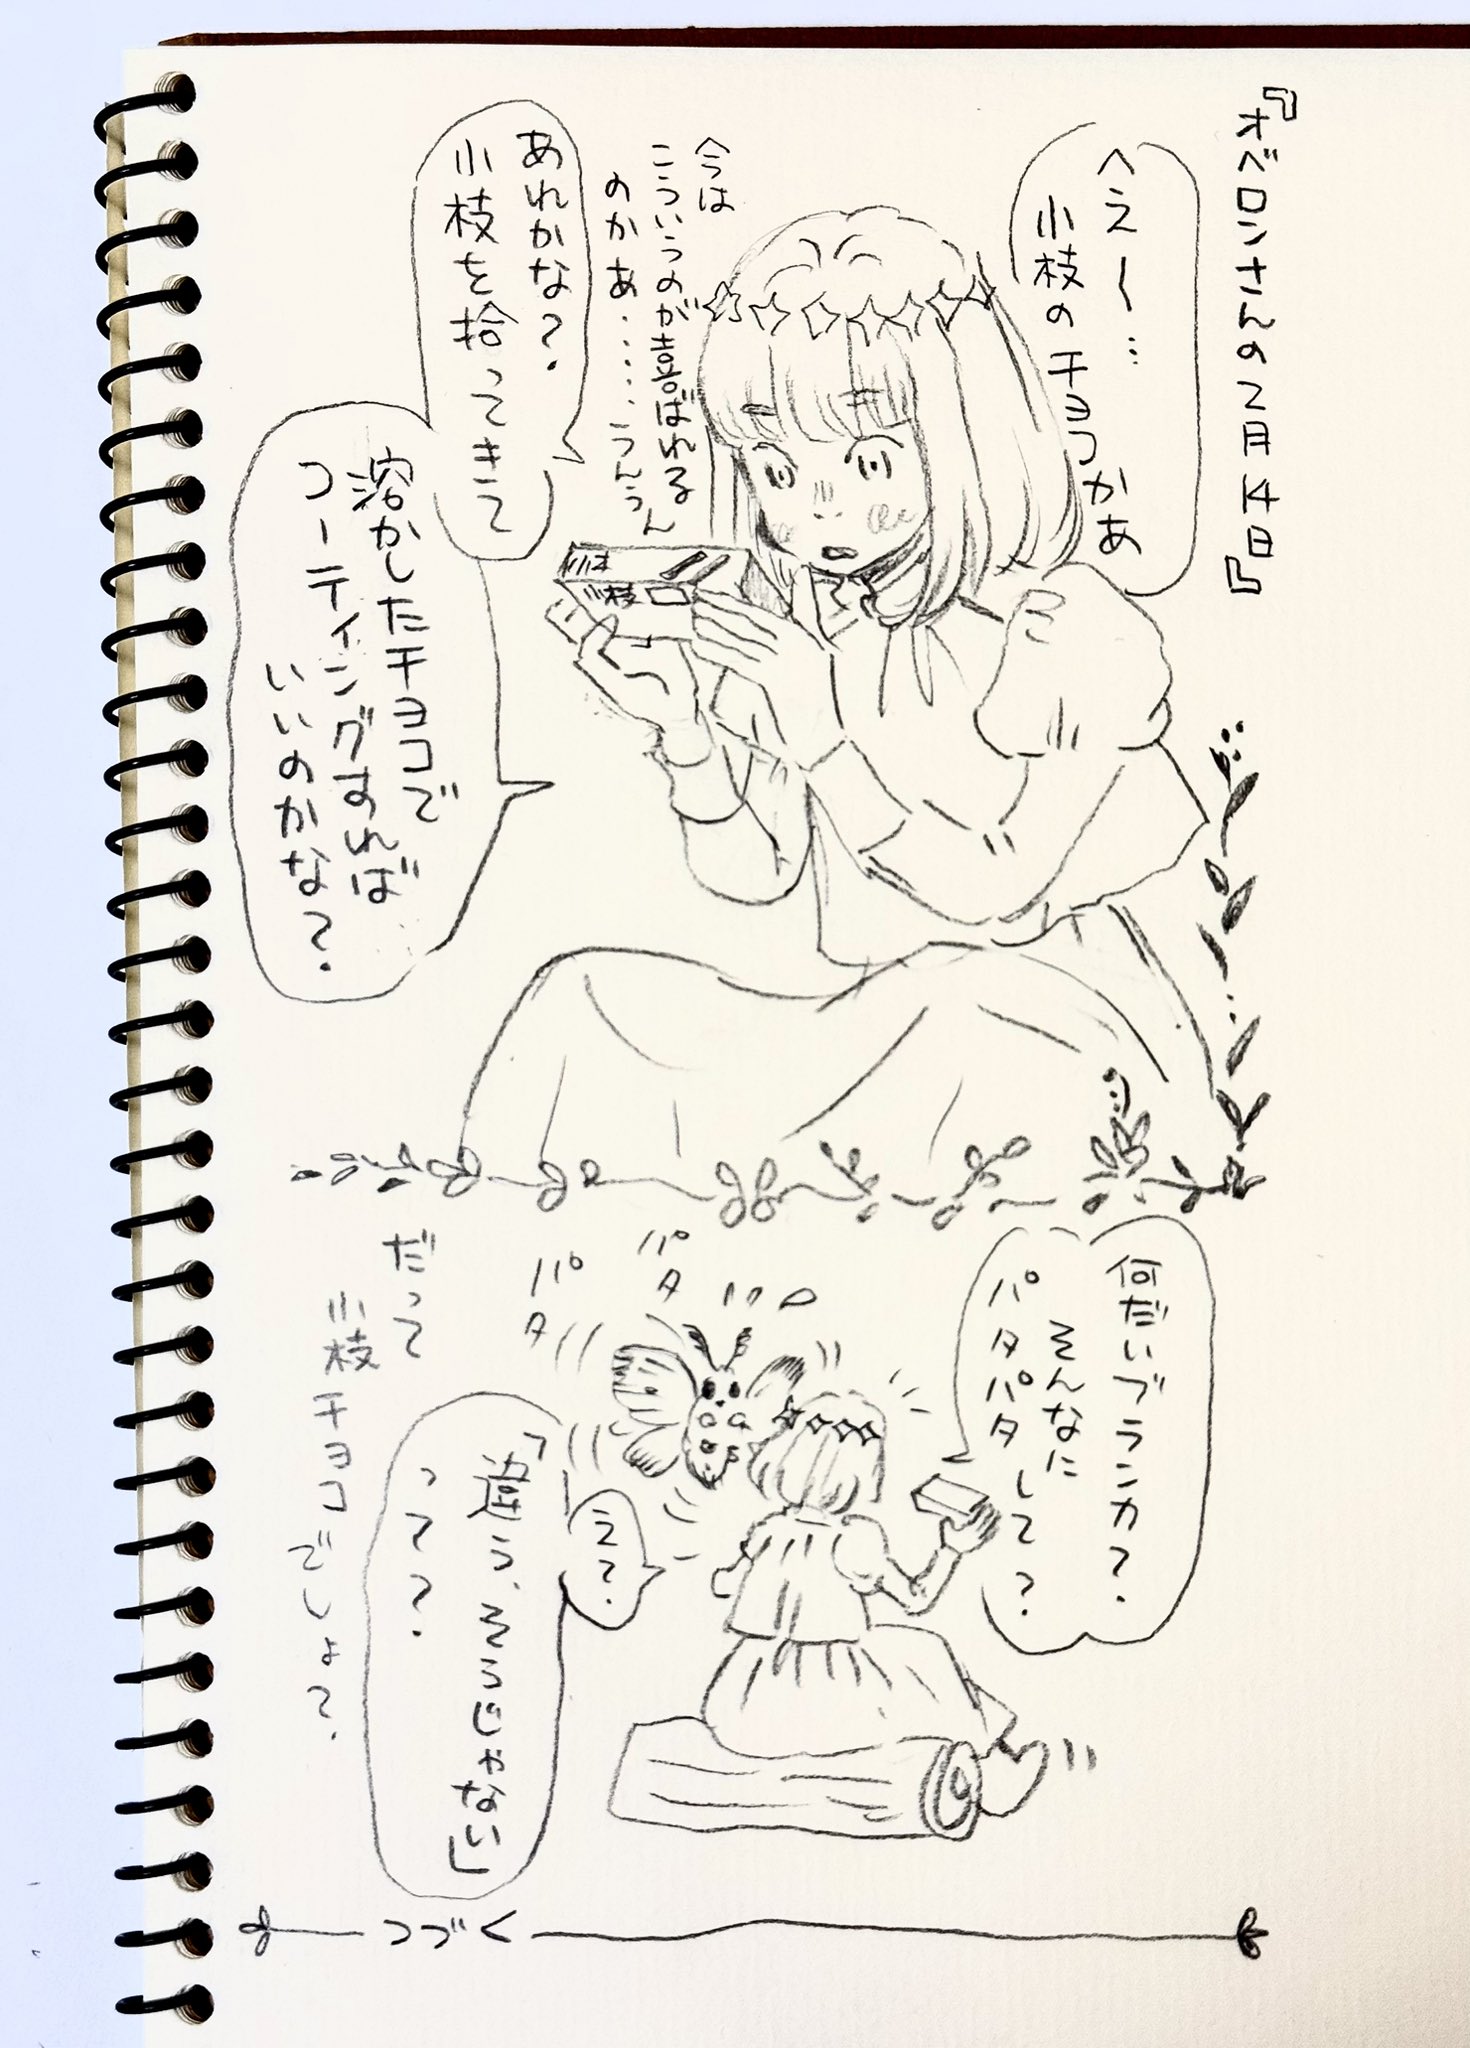 『オベロンさんの2月14日』
へえ〜…
小枝のチョコかあ
今は
こういうのが喜ばれる
のかあ……うんうん
小枝
あれかな?
小枝を拾ってきて
溶かしたチョコで
コーティングすれば
いいのかな?
何だいブランカ?
そんなに
パタパタして?
パタ
パタ
え?
「違う、そうじゃない」
って?
だって
小枝チョコでしょ?
つづく